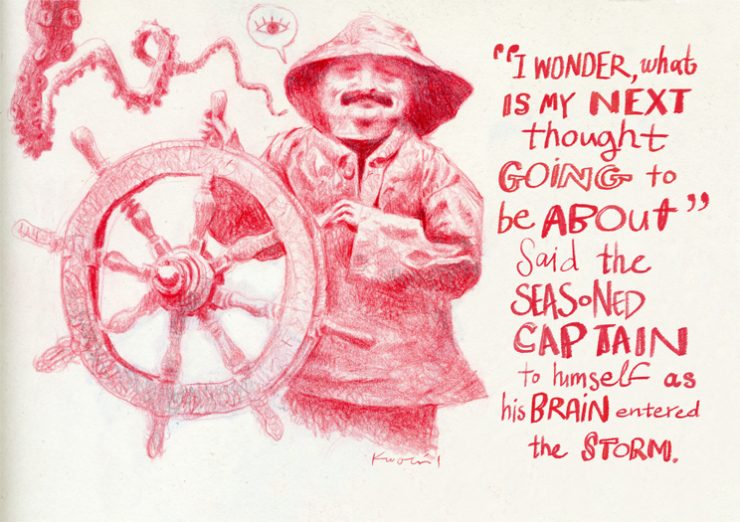 "I WONDER, what
IS MY NEXT
thought
GOING to
be ABOUt"
Said the
SEASONED
CAPTAIN
to himself as
his BRAIN entered
the STORM.